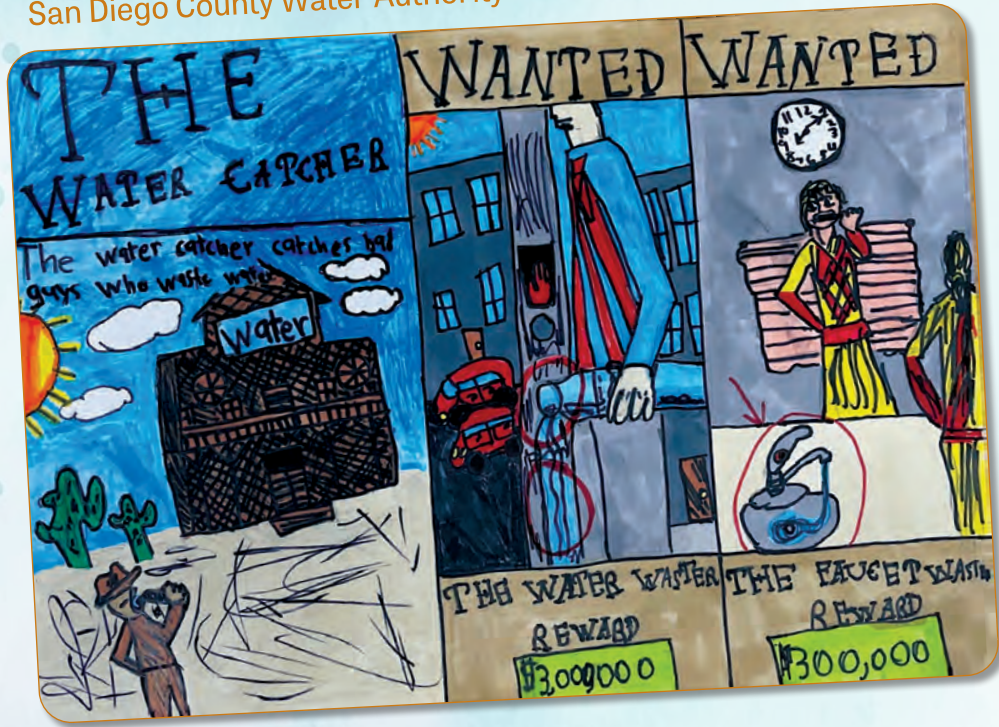 San Diego County Water Authority
THE
WATER CATCHER
The water catcher catches bad
guys who waste water
Water
WANTED
THE WATER WASTER
REWARD
WANTED
12
THE FAUCET
REWARD
$300,000